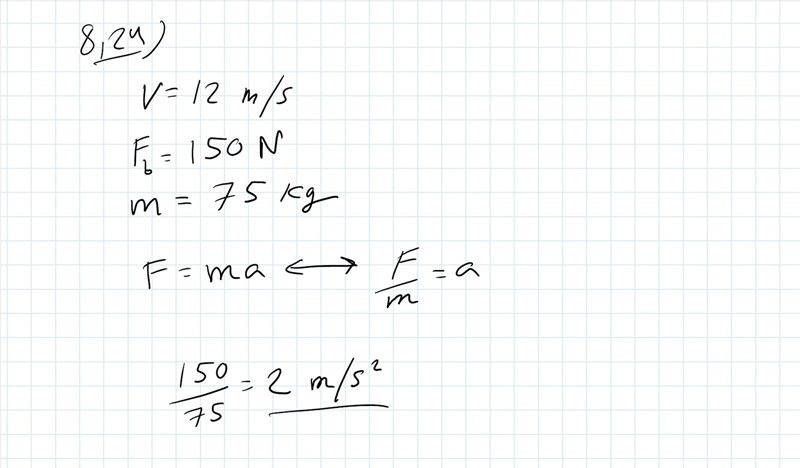 8,24)
V = 12 m/s
F_b = 150 N
m = 75 kg
F = ma ⟷ F/m = a
150/75 = 2 m/s²